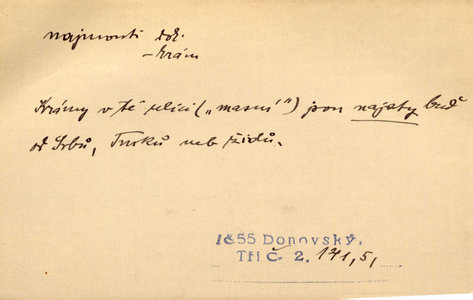 najmouti dok.
– krám
Krámy v té ulici („masné“) jsou najaty buď
od Srbů, Turků neb židů.
1855 Donovský,
Tři č. 2. 171,5,